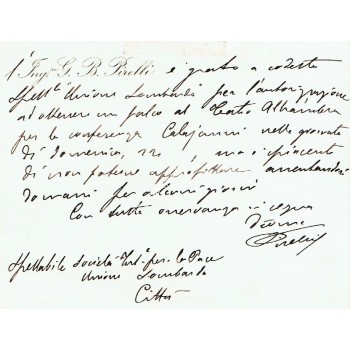 l'Ing.re G. B. Pirelli è grato a codesta
Spett.le Unione Lombarda per l'autorizzazione
ad ottenere un palco al Teatro Alhambra
per la conferenza Colajanni nella giornata
di domenica, 22 ma è spiacente
di non potere approfittare assentandosi
domani per alcuni giorni
Con tutta osservanza si segna
Pirelli
Spettabile Società Int.le per la Pace
Unione Lombarda
Città